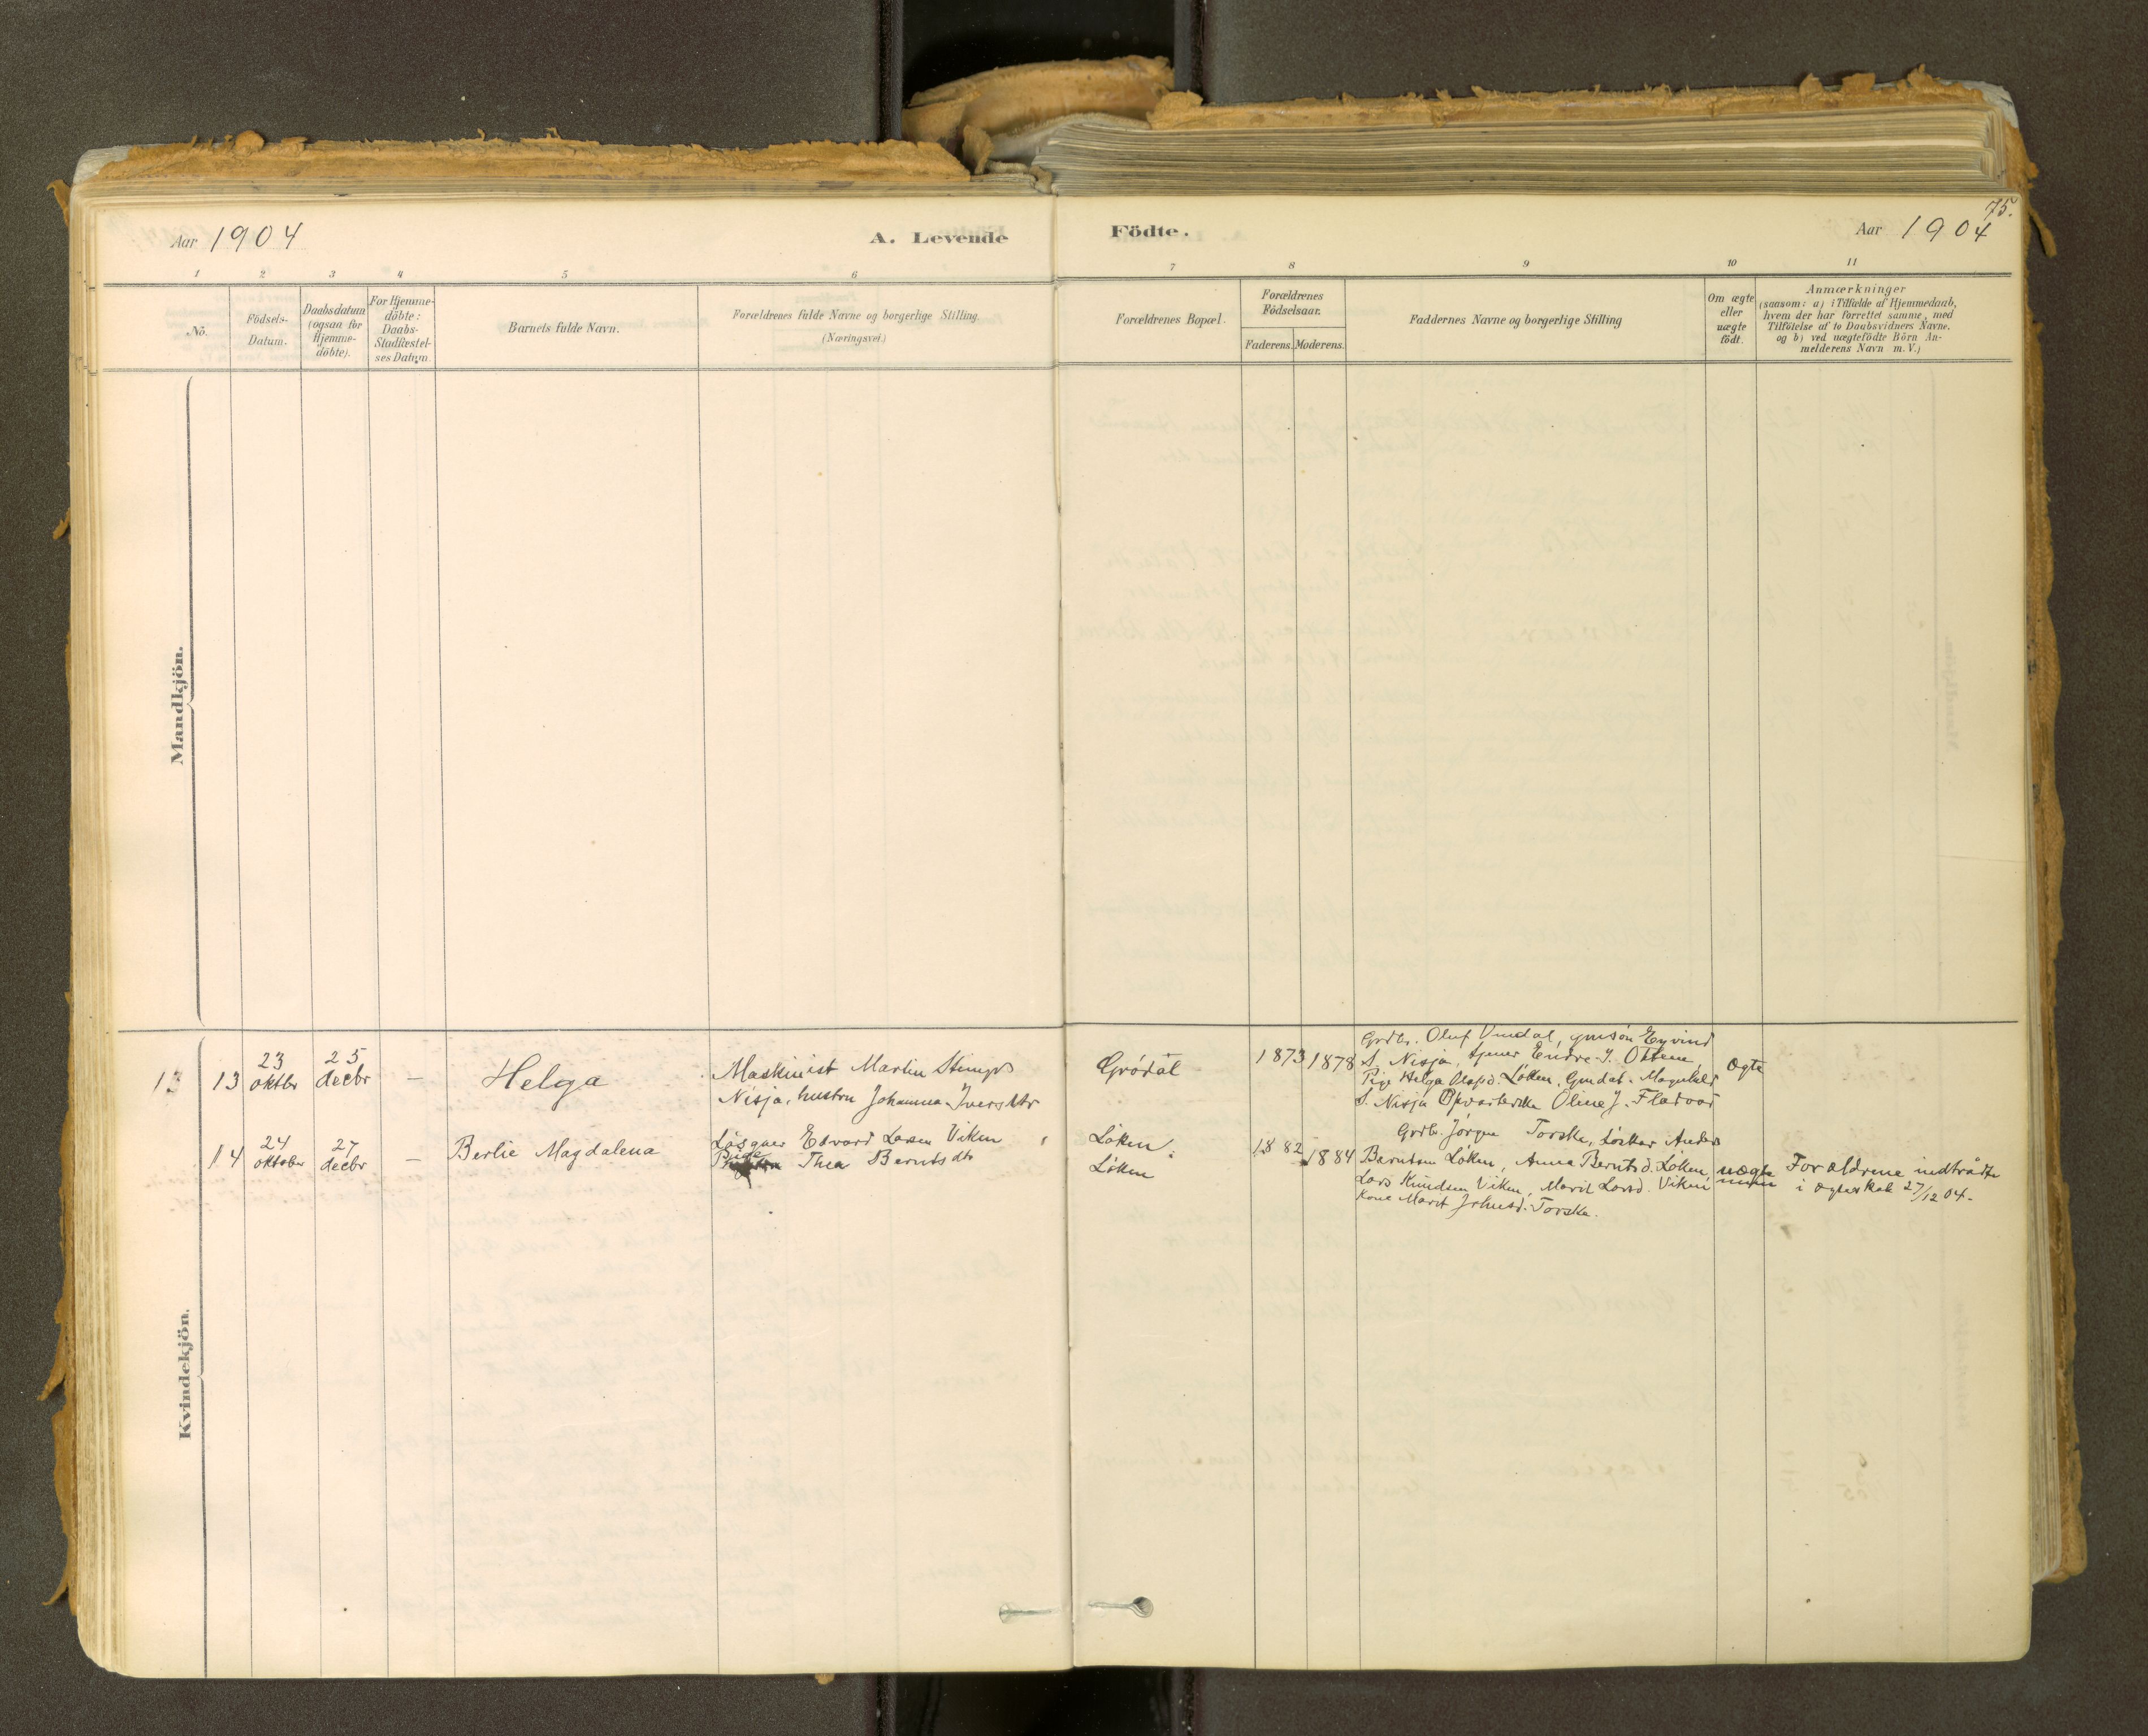 75.
Aar 1904
A. Levende
Födte.
Aar 1904
1 2 3 4 5 6 7 8 9 10 11
Nö.
Födsels-
Datum.
Daabsdatum
(ogsaa for
Hjemme-
döbte).
For Hjemme-
döbte:
Daabs-
Stadfæstel-
ses Datum.
Barnets fulde Navn.
Forældrenes fulde Navne og borgerlige Stilling.
(Næringsvei.)
Forældrenes Bopæl.
Forældrenes
Födselsaar.
Faderens. Moderens.
Faddernes Navne og borgerlige Stilling
Om ægte
eller
uægte
födt.
Anmærkninger
(saasom: a) i Tilfælde af Hjemmedaab,
hvem der har forrettet samme, med
Tilföielse af to Daabsvidners Navne.
og b) ved uægtefödte Börn An-
melderens Navn m. V.)
Mandkjön.
Kvindekjön.
13
13
23
oktbr
25
decbr
—
Helga
Maskinist Martin
Nisja, hustru Johanna Iversdtr
Grödal
1873
1878
Grdbr. Oluf Vindal, Eyvind
S. Nisja, tjener Endre J.
Pige Helga Olafsd. Løken,
S. Nisja Oline J.
Ægte
14
24
oktober
27
decbr
—
Berlie Magdalena
Edvard Larsen Viken
Pige
Thea Berntsdtr
Løken
Løken
1882
1884
Grdbr. Jørgen Torske, Anders
Berntsen Løken, Anna Berntsd. Løken
Lars Knudsen Viken, Marit Larsd. Viken
Kone Marit Johnsd. Torske.
uægte
Forældrene indtrådte
i ægteskab 27/12 04.